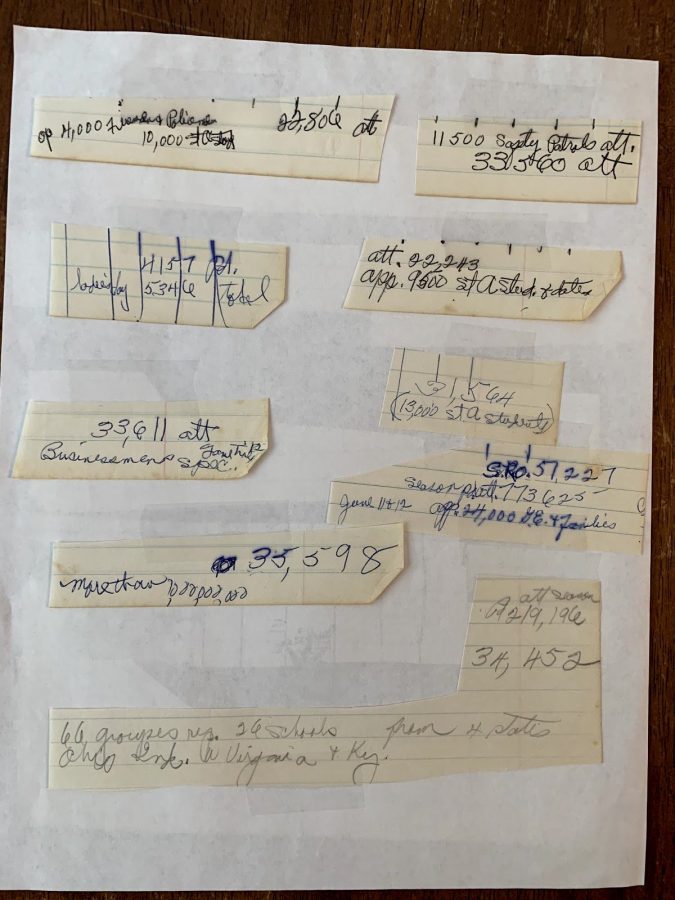 4,000 Firemen & Policemen
10,000 22,806 att
11500 Safety Patrols att.
33,560 att
4157 pd.
ladies day 5346 Total
att. 22,243
app. 9500 st A Stud. & dates
31,564
(13,000 st A students)
33,611 att
Businessmens spec.
S.R.O. 57,227
season att. 773625
June 11 & 12 app. 24,000 G.E. families
35,598
more than 1,000,000
att season
219,196
34,452
66 groupes rep. 26 schools from 4 states
Ohio Ind. W Virginia & Ky.